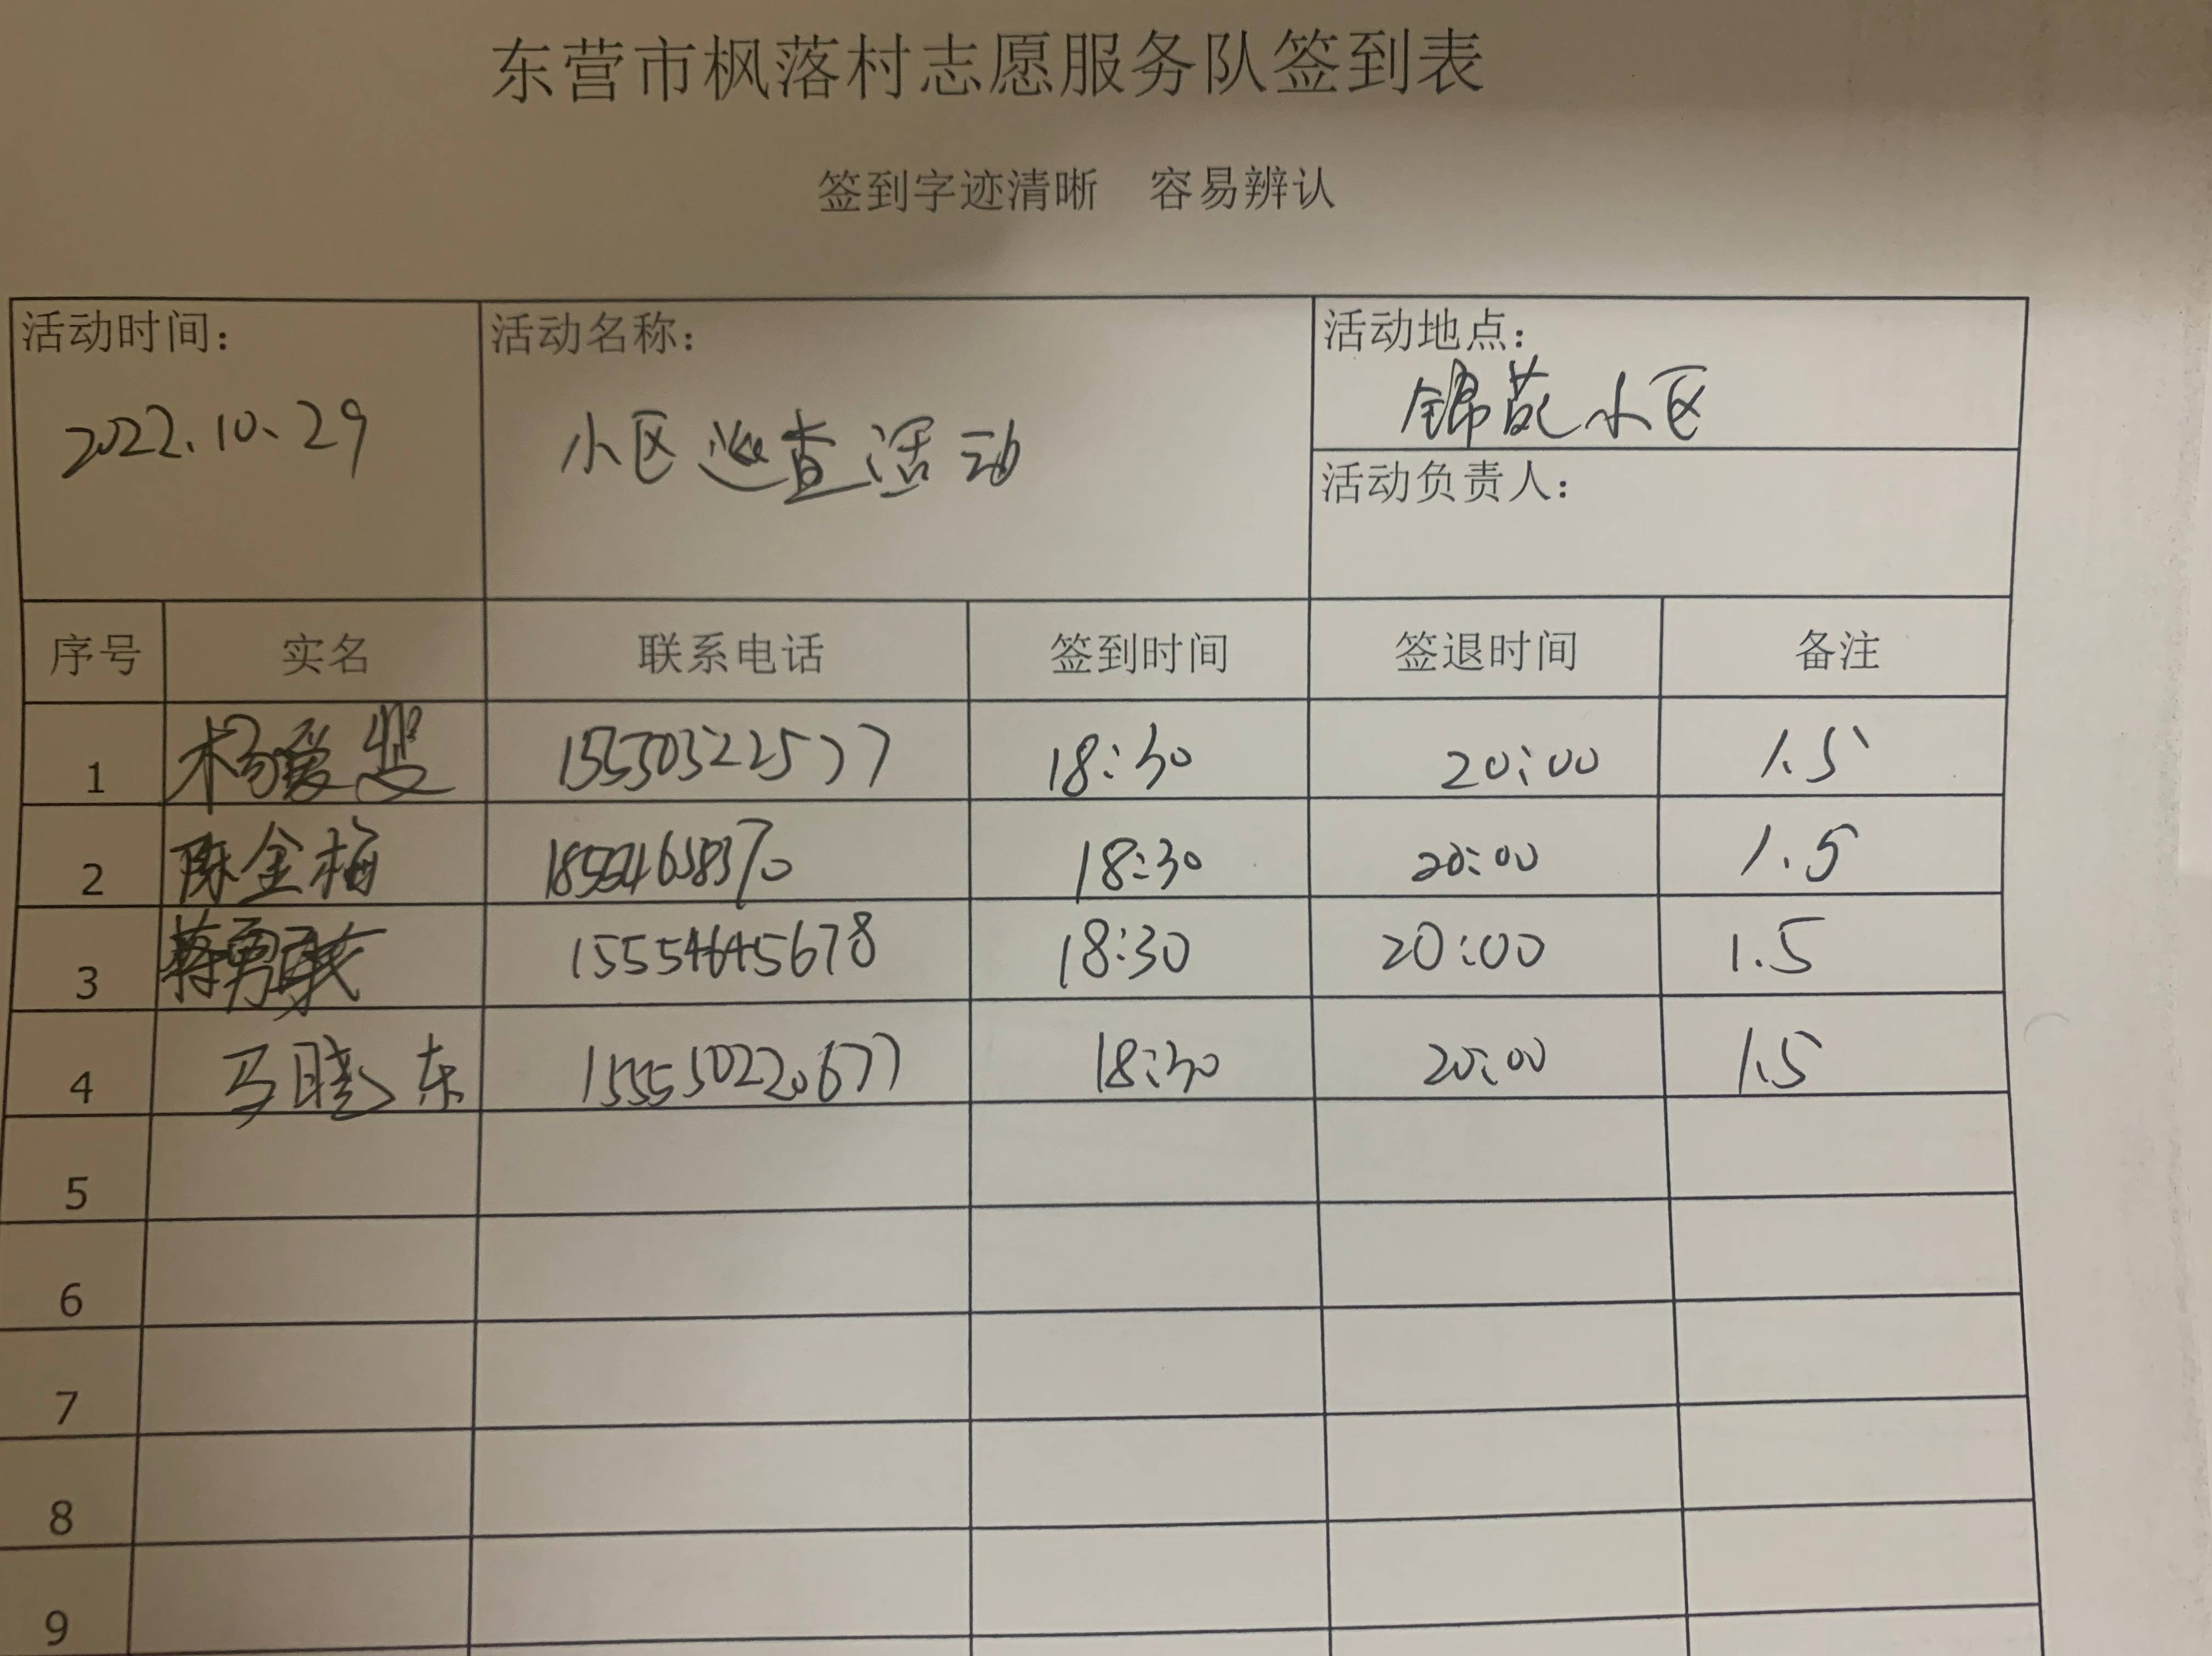 东营市枫落村志愿服务队签到表
签到字迹清晰 容易辨认
活动时间： 活动名称： 活动地点：
2022.10.29 小区巡查活动 锦苑小区
活动负责人：
序号 实名 联系电话 签到时间 签退时间 备注
1 杨爱 18:30 20:00 1.5
2 陈金梅 18:30 20:00 1.5
3 蒋勇 15554645678 18:30 20:00 1.5
4 马晓东 18:30 20:00 1.5
5
6
7
8
9